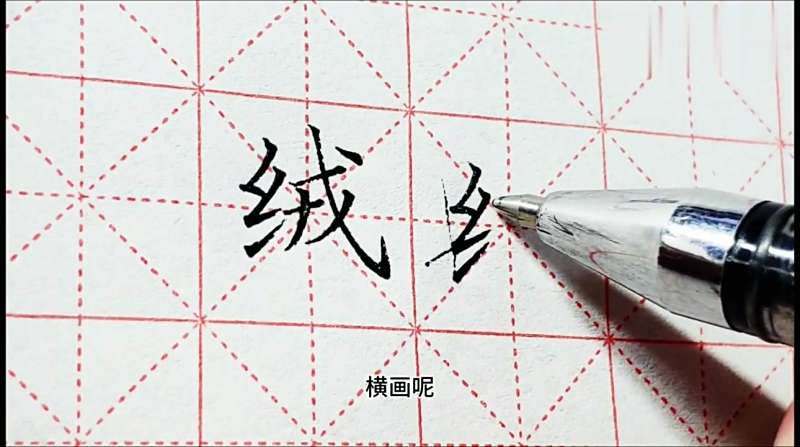 绒 纟
横画呢